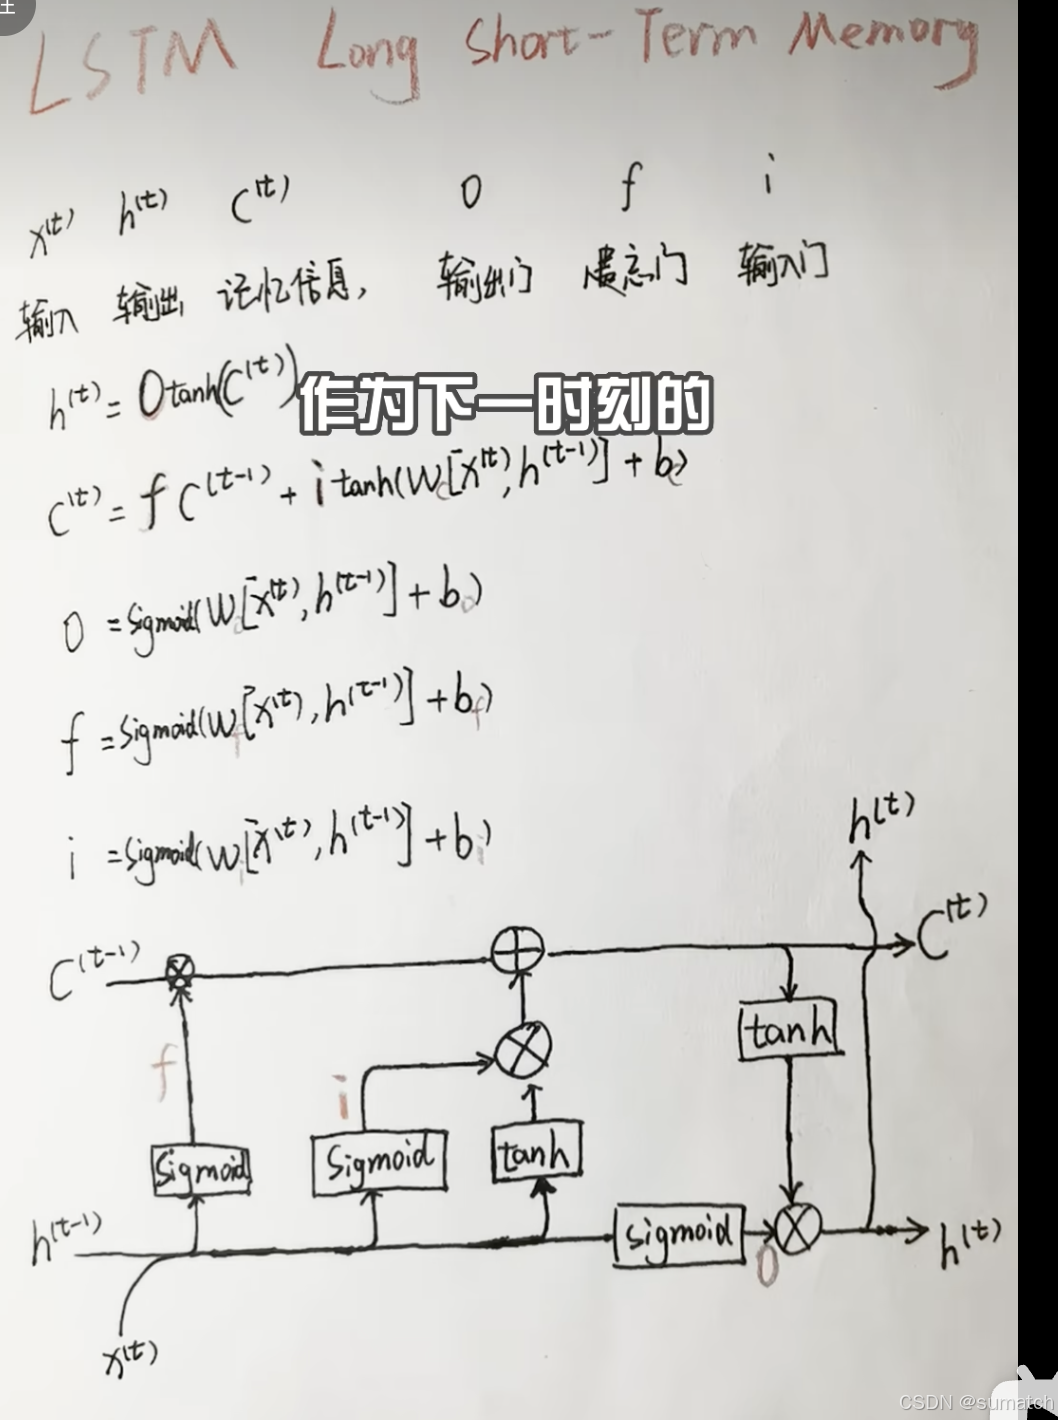 王
LSTM Long Short-Term Memory
x⁽ᵗ⁾ h⁽ᵗ⁾ C⁽ᵗ⁾ O f i
输入 输出 记忆信息, 输出门 遗忘门 输入门
h⁽ᵗ⁾ = O tanh(C⁽ᵗ⁾)
作为下一时刻的
C⁽ᵗ⁾ = f C⁽ᵗ⁻¹⁾ + i tanh(W_c[x⁽ᵗ⁾, h⁽ᵗ⁻¹⁾] + b_c)
O = Sigmoid(W_o[x⁽ᵗ⁾, h⁽ᵗ⁻¹⁾] + b_o)
f = Sigmoid(W_f[x⁽ᵗ⁾, h⁽ᵗ⁻¹⁾] + b_f)
i = Sigmoid(W_i[x⁽ᵗ⁾, h⁽ᵗ⁻¹⁾] + b_i)
h⁽ᵗ⁾
C⁽ᵗ⁻¹⁾ C⁽ᵗ⁾
tanh
f i
Sigmoid Sigmoid tanh
h⁽ᵗ⁻¹⁾ Sigmoid O h⁽ᵗ⁾
x⁽ᵗ⁾
CSDN @sumatch